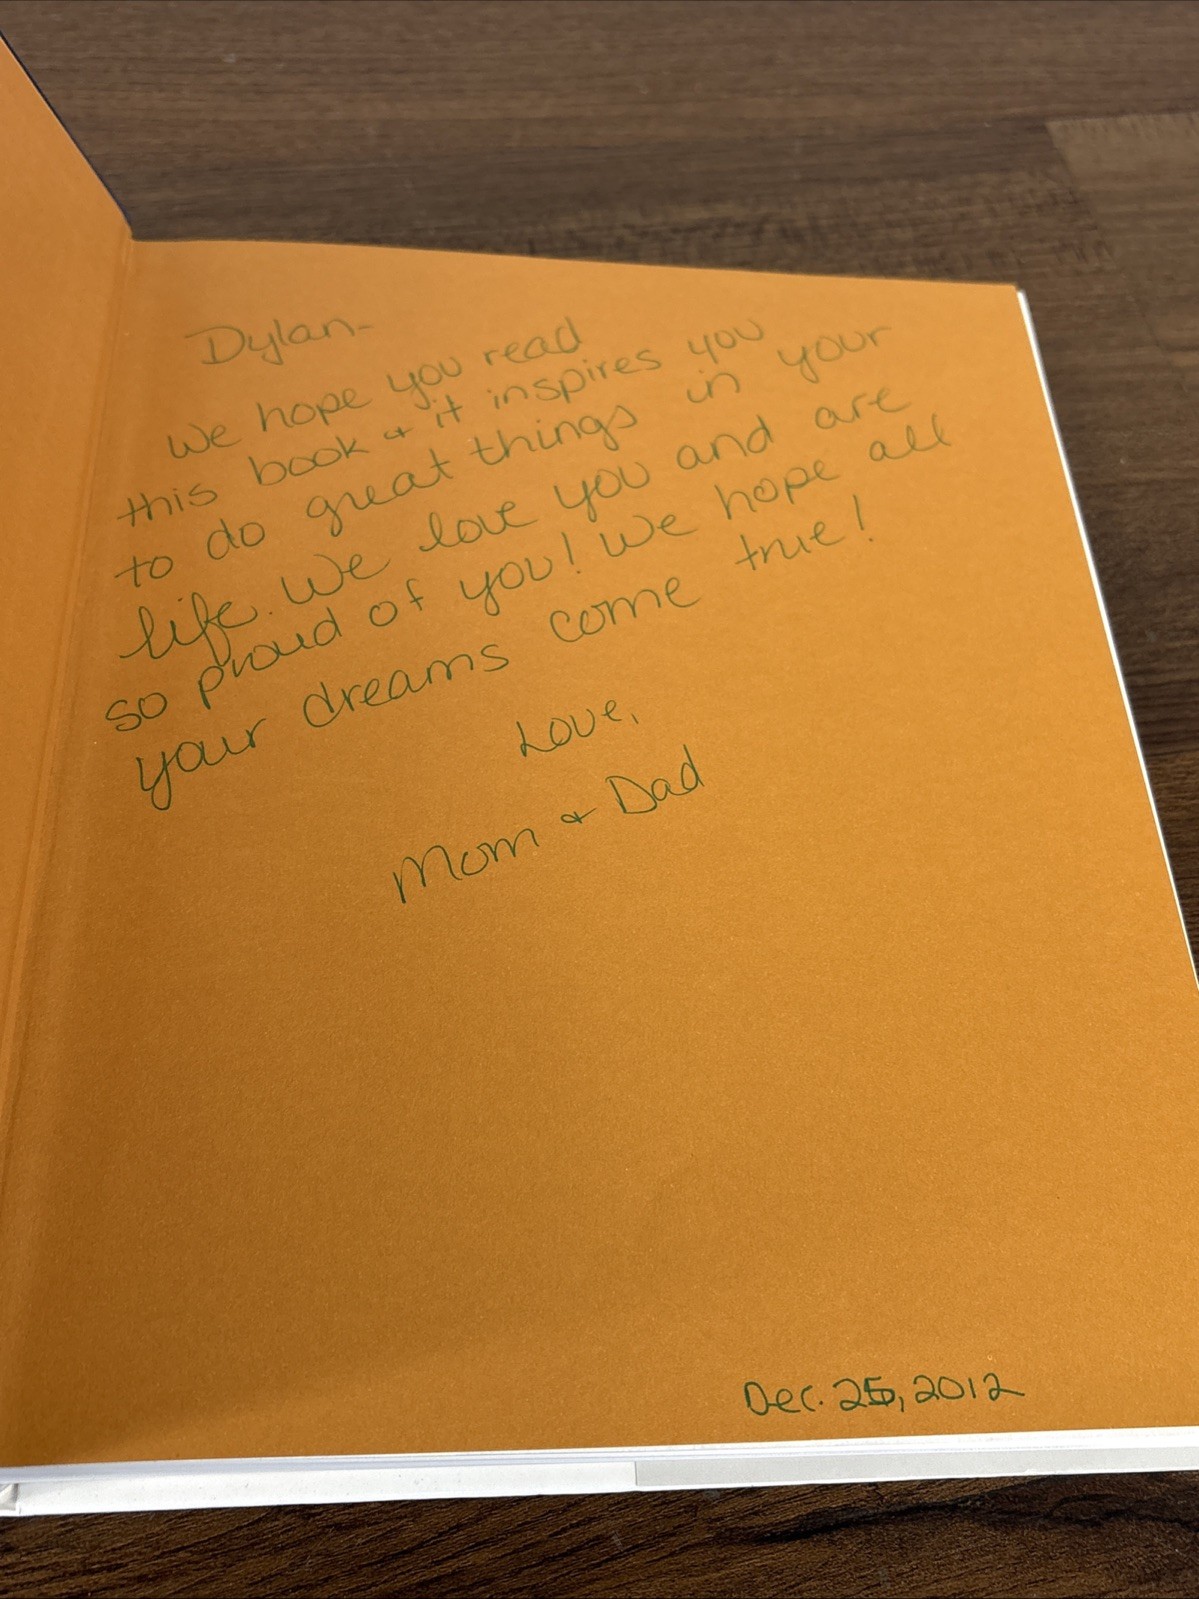 Dylan-
We hope you read
this book & it inspires you
to do great things in your
life. We love you and are
so proud of you! We hope all
your dreams come true!
Love,
Mom & Dad
Dec. 25, 2012